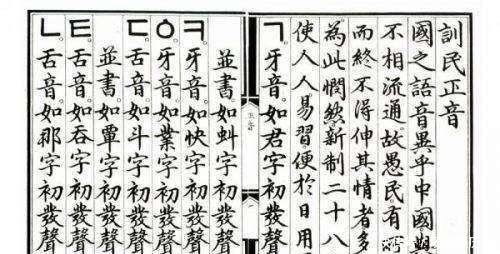 訓民正音
國之語音異乎中國與
不相流通。故愚民有所
而終不得伸其情者多
為此憫然新制二十八
使人人易習。便於日用
ㄱ牙音。如君字初發聲
並書。如虯字初發聲
ㅋ牙音。如快字初發聲
ㆁ牙音。如業字初發聲
ㄷ舌音。如斗字初發聲
並書。如覃字初發聲
ㅌ舌音。如吞字初發聲
ㄴ舌音。如那字初發聲